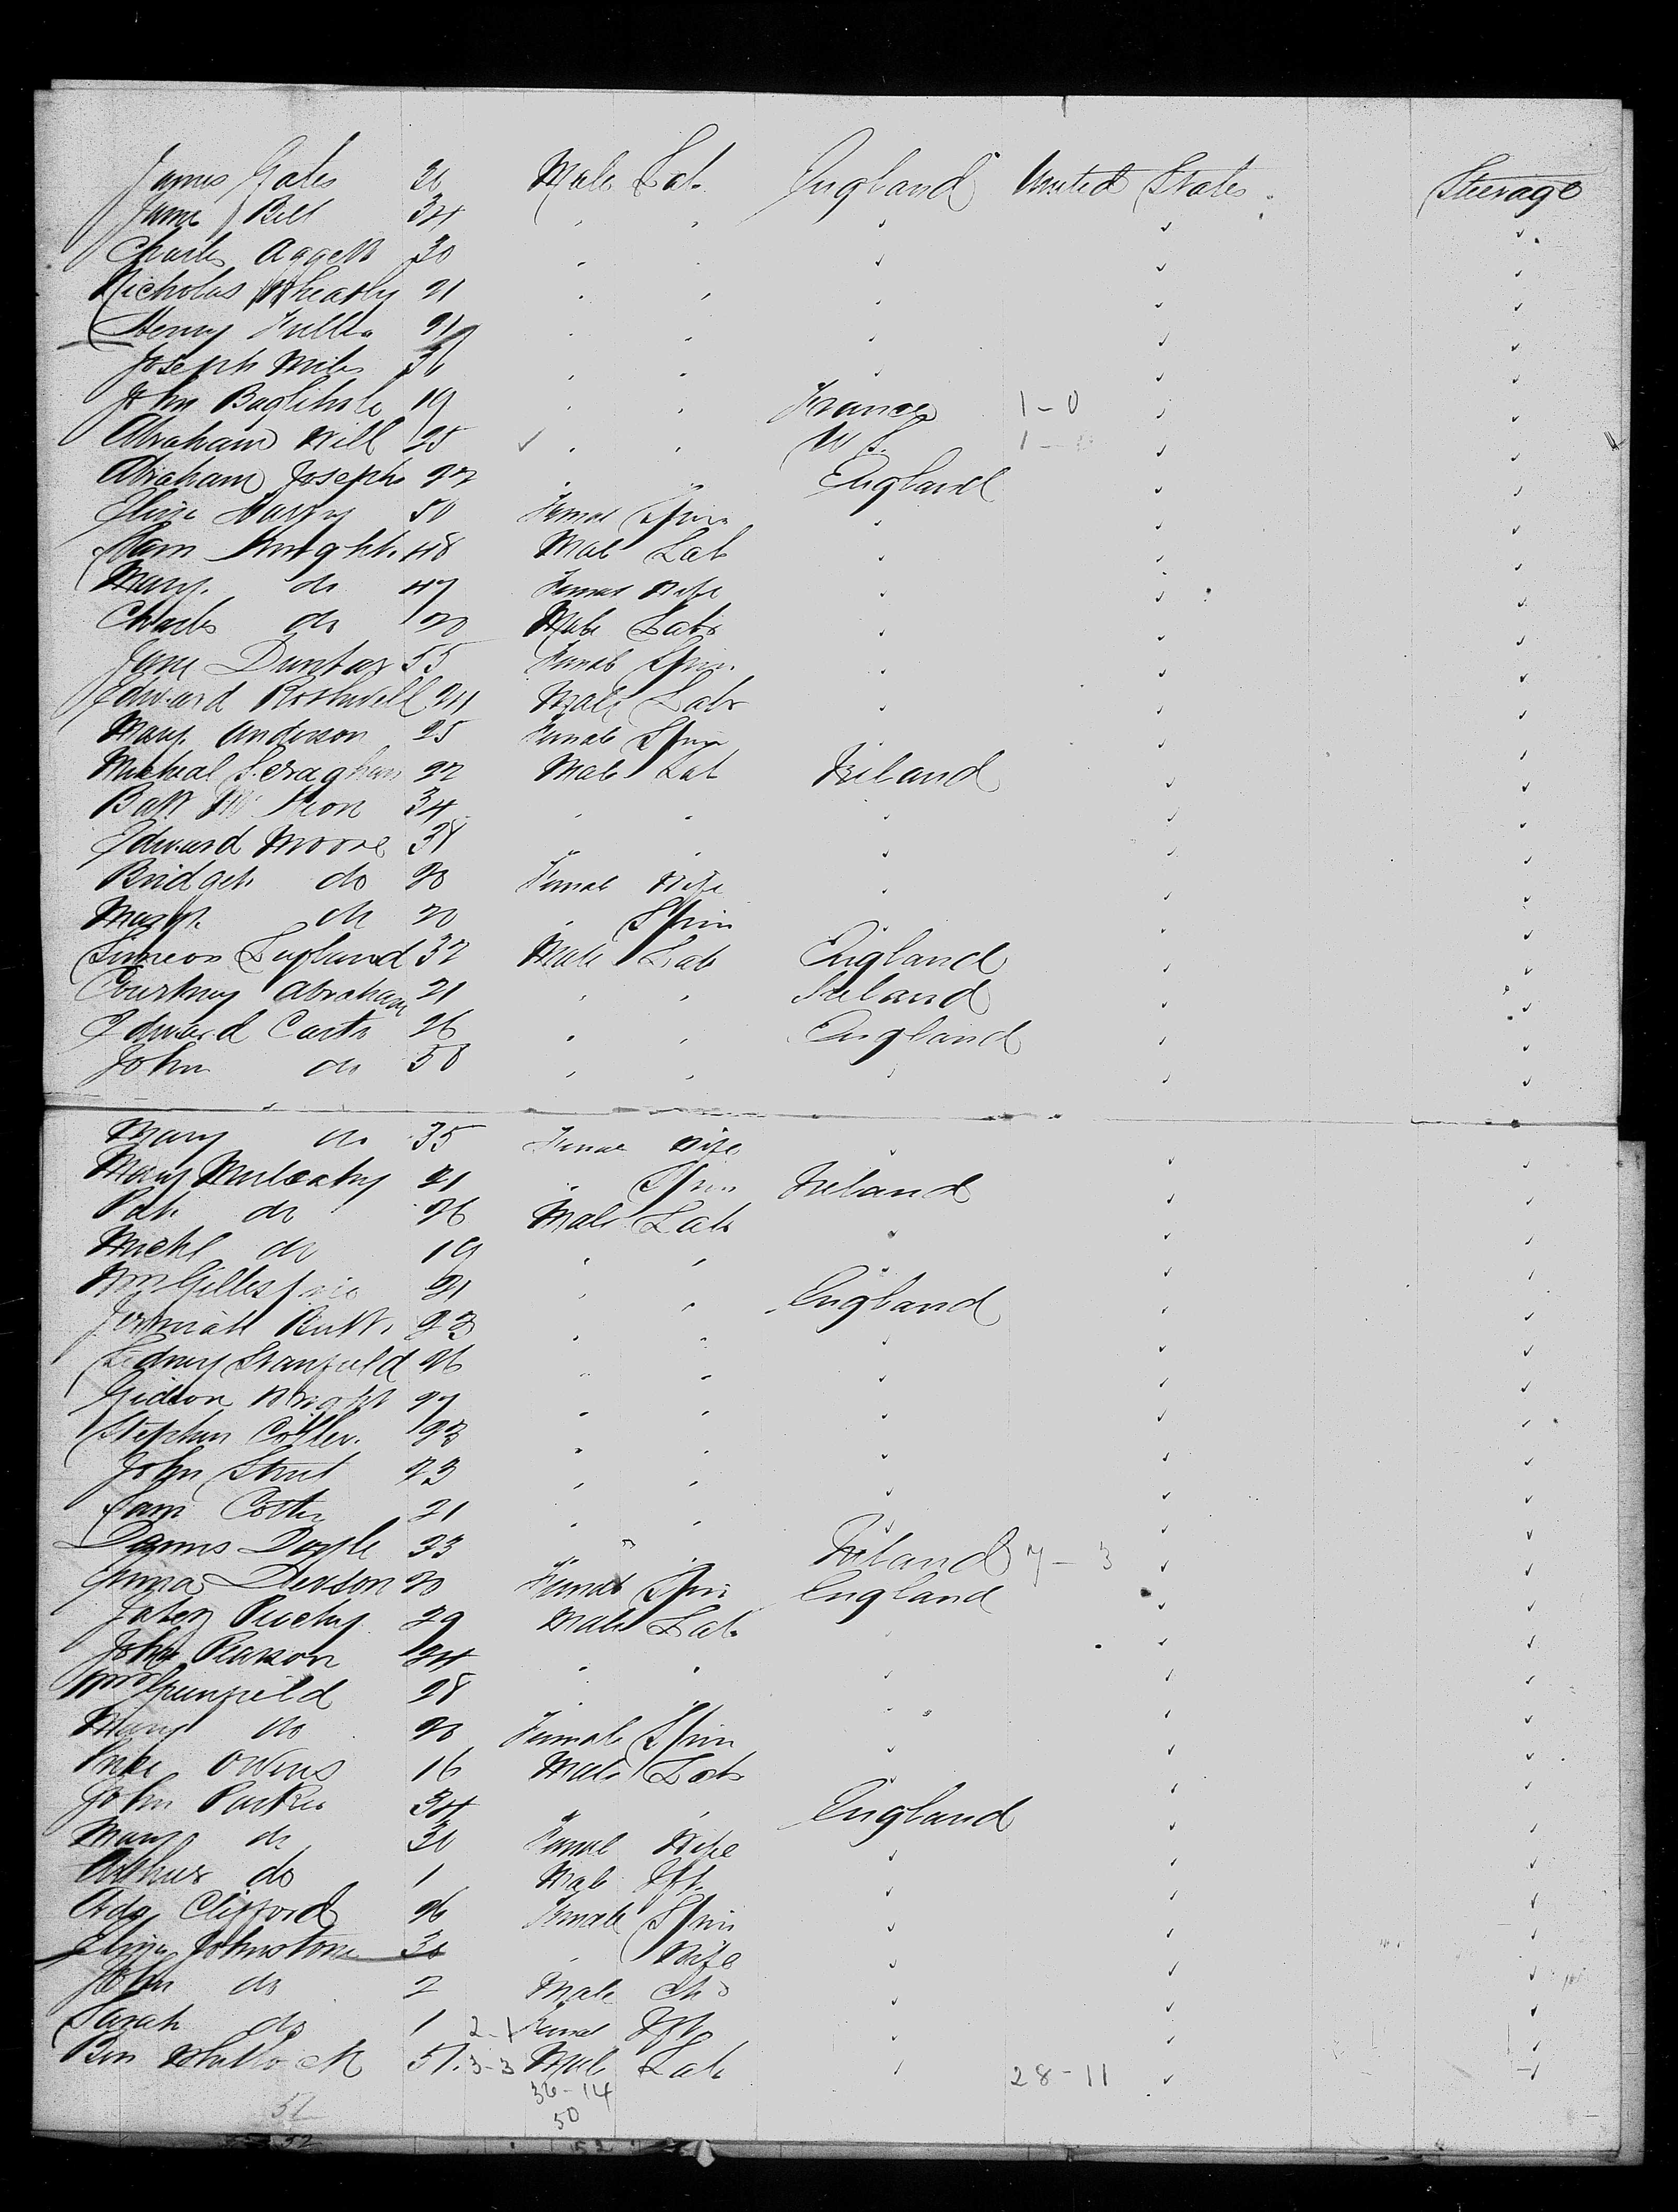 James Gates 20 Male Lab. England United States. Steerage
James Bell 34 " " " " "
Charles Aggett 30 " " " " "
Nicholas Wheatly 21 " " " " "
Henry 21 " " " " "
Joseph Miles 36 " " " " "
John 19 " " France 1-0 " "
Abraham Will 25 " " U S. 1-0 " "
Abraham Joseph 22 " " England " "
Eliza Harry 50 Femal Spin " " "
Sam Knight 48 Male Lab " " "
Mary do 47 Femal Wife " " "
Charls do 20 Male Labr " " "
Jane Dunbar 55 Femal Spin " " "
Edward Rothwell 24 Male Labr " " "
Mary Anderson 25 Female Spin " " "
Micheal 22 Male Lab Ireland " "
Batt Mc Keon 34 " " " " "
Edward Moore 38 " " " " "
Bridget do 20 Femal Wife " " "
Margt do 20 " Spin " " "
Simeon England 32 Male Lab England " "
Courtney Abraham 21 " " Ireland " "
Edward Carter 26 " " England " "
John do 50 " " " " "
Mary do 35 Femal Wife " " "
Mary Mulcahy 21 " Spin Ireland " "
Pat do 26 Male Lab " " "
Michl do 19 " " " " "
Wm Gillespie 21 " " England " "
Jermiah Butt 23 " " " " "
Sidney Stanfield 26 " " " " "
Gideon Wright 27 " " " " "
Stephen Cotter 23 " " " " "
John Strut 23 " " " " "
Sam Cotter 21 " " " " "
Dennis Doyle 23 " " Ireland 7-3 " "
Emma 20 Femal Spin England " "
Jabez 29 Male Lab " " "
John Pearson 24 " " " " "
Wm Greenfield 28 " " " " "
Mary do 20 Female Spin " " "
Owens 16 Male Lab " " "
John Parker 34 " " England " "
Mary do 30 Femal Wife " " "
Arthur do 1 Male Ift. " " "
Ada Clifford 26 Female Spin " " "
Eliza Johnstone 30 " Wife " " "
John do 2 Male Chd " " "
Sarah do 1 2-1 Femal Ift " " "
Ben 51. 3-3 Male Lab " 28-11 " "
36-14
50
52